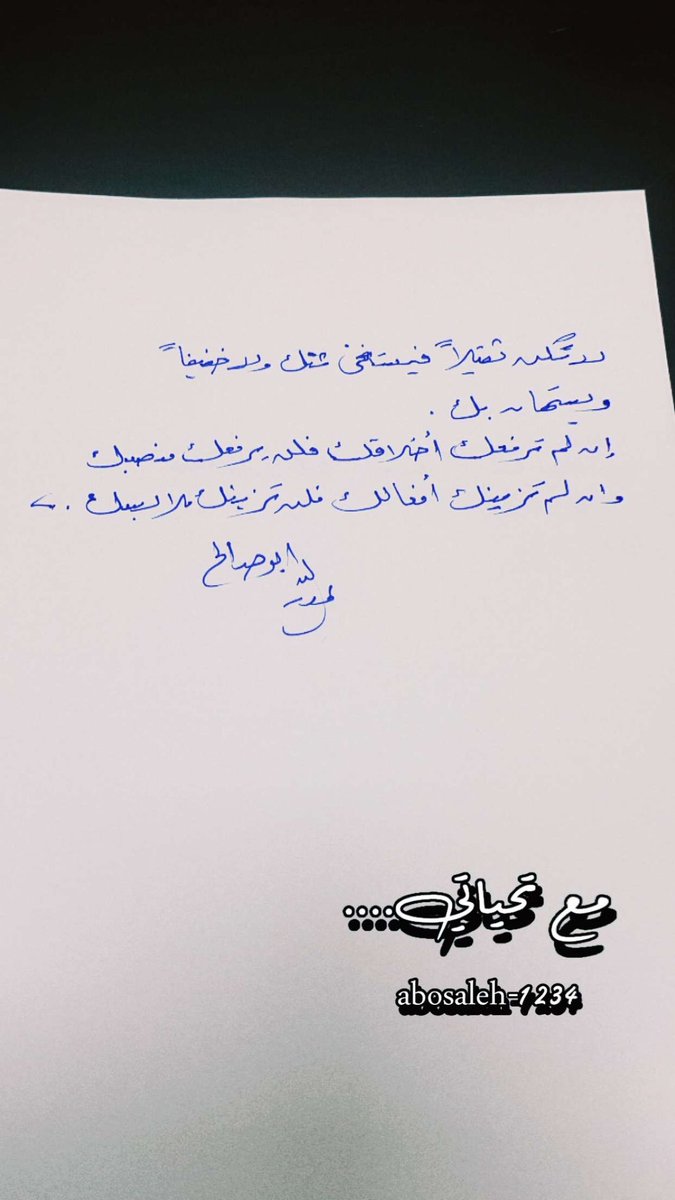 لا تكن ثقيلاً فيستغنى عنك ولا خفيفاً
ويستهان بك .
إن لم ترفعك أخلاقك فلن يرفعك منصبك
وان لم تزينك أفعالك فلن تزينك ملابسك .
ابو صالح
مع تحياتي....
abosaleh-1234